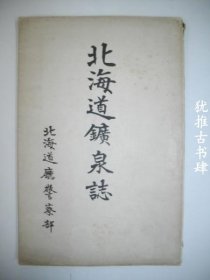 北海道鑛泉誌
北海道廳警察部
犹推古书肆